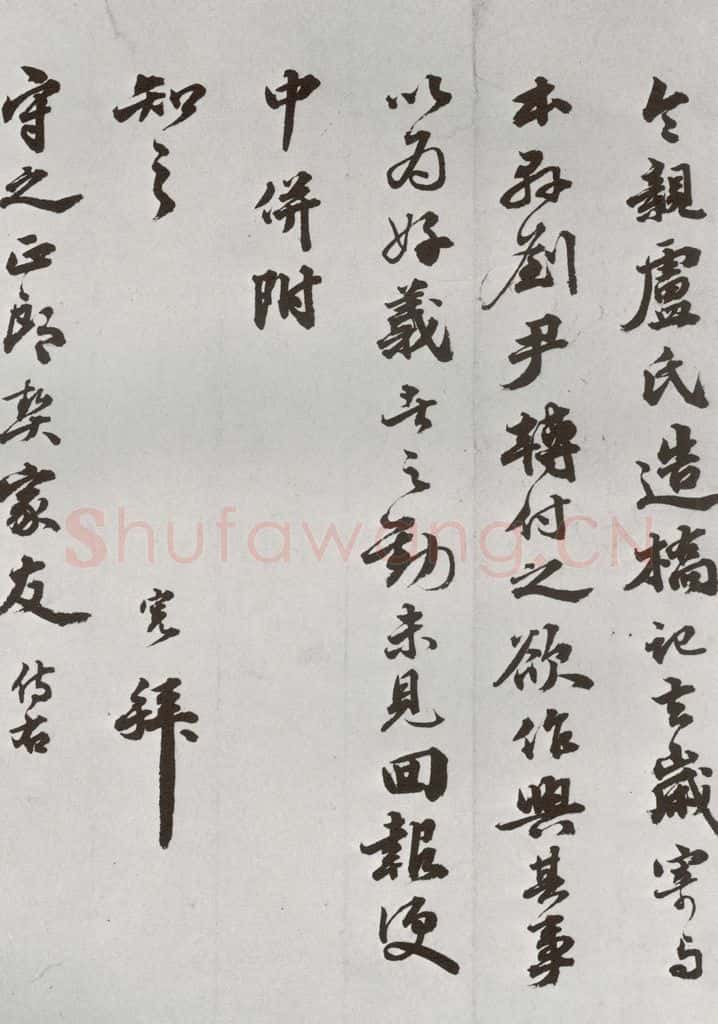 令親盧氏造橋記去歲寄与
本縣劉尹轉付之欲作興其事
以為好義者之勸未見回報便
中併附
知之
寬拜
守之正郎契家友侍右
Shufawang.CN